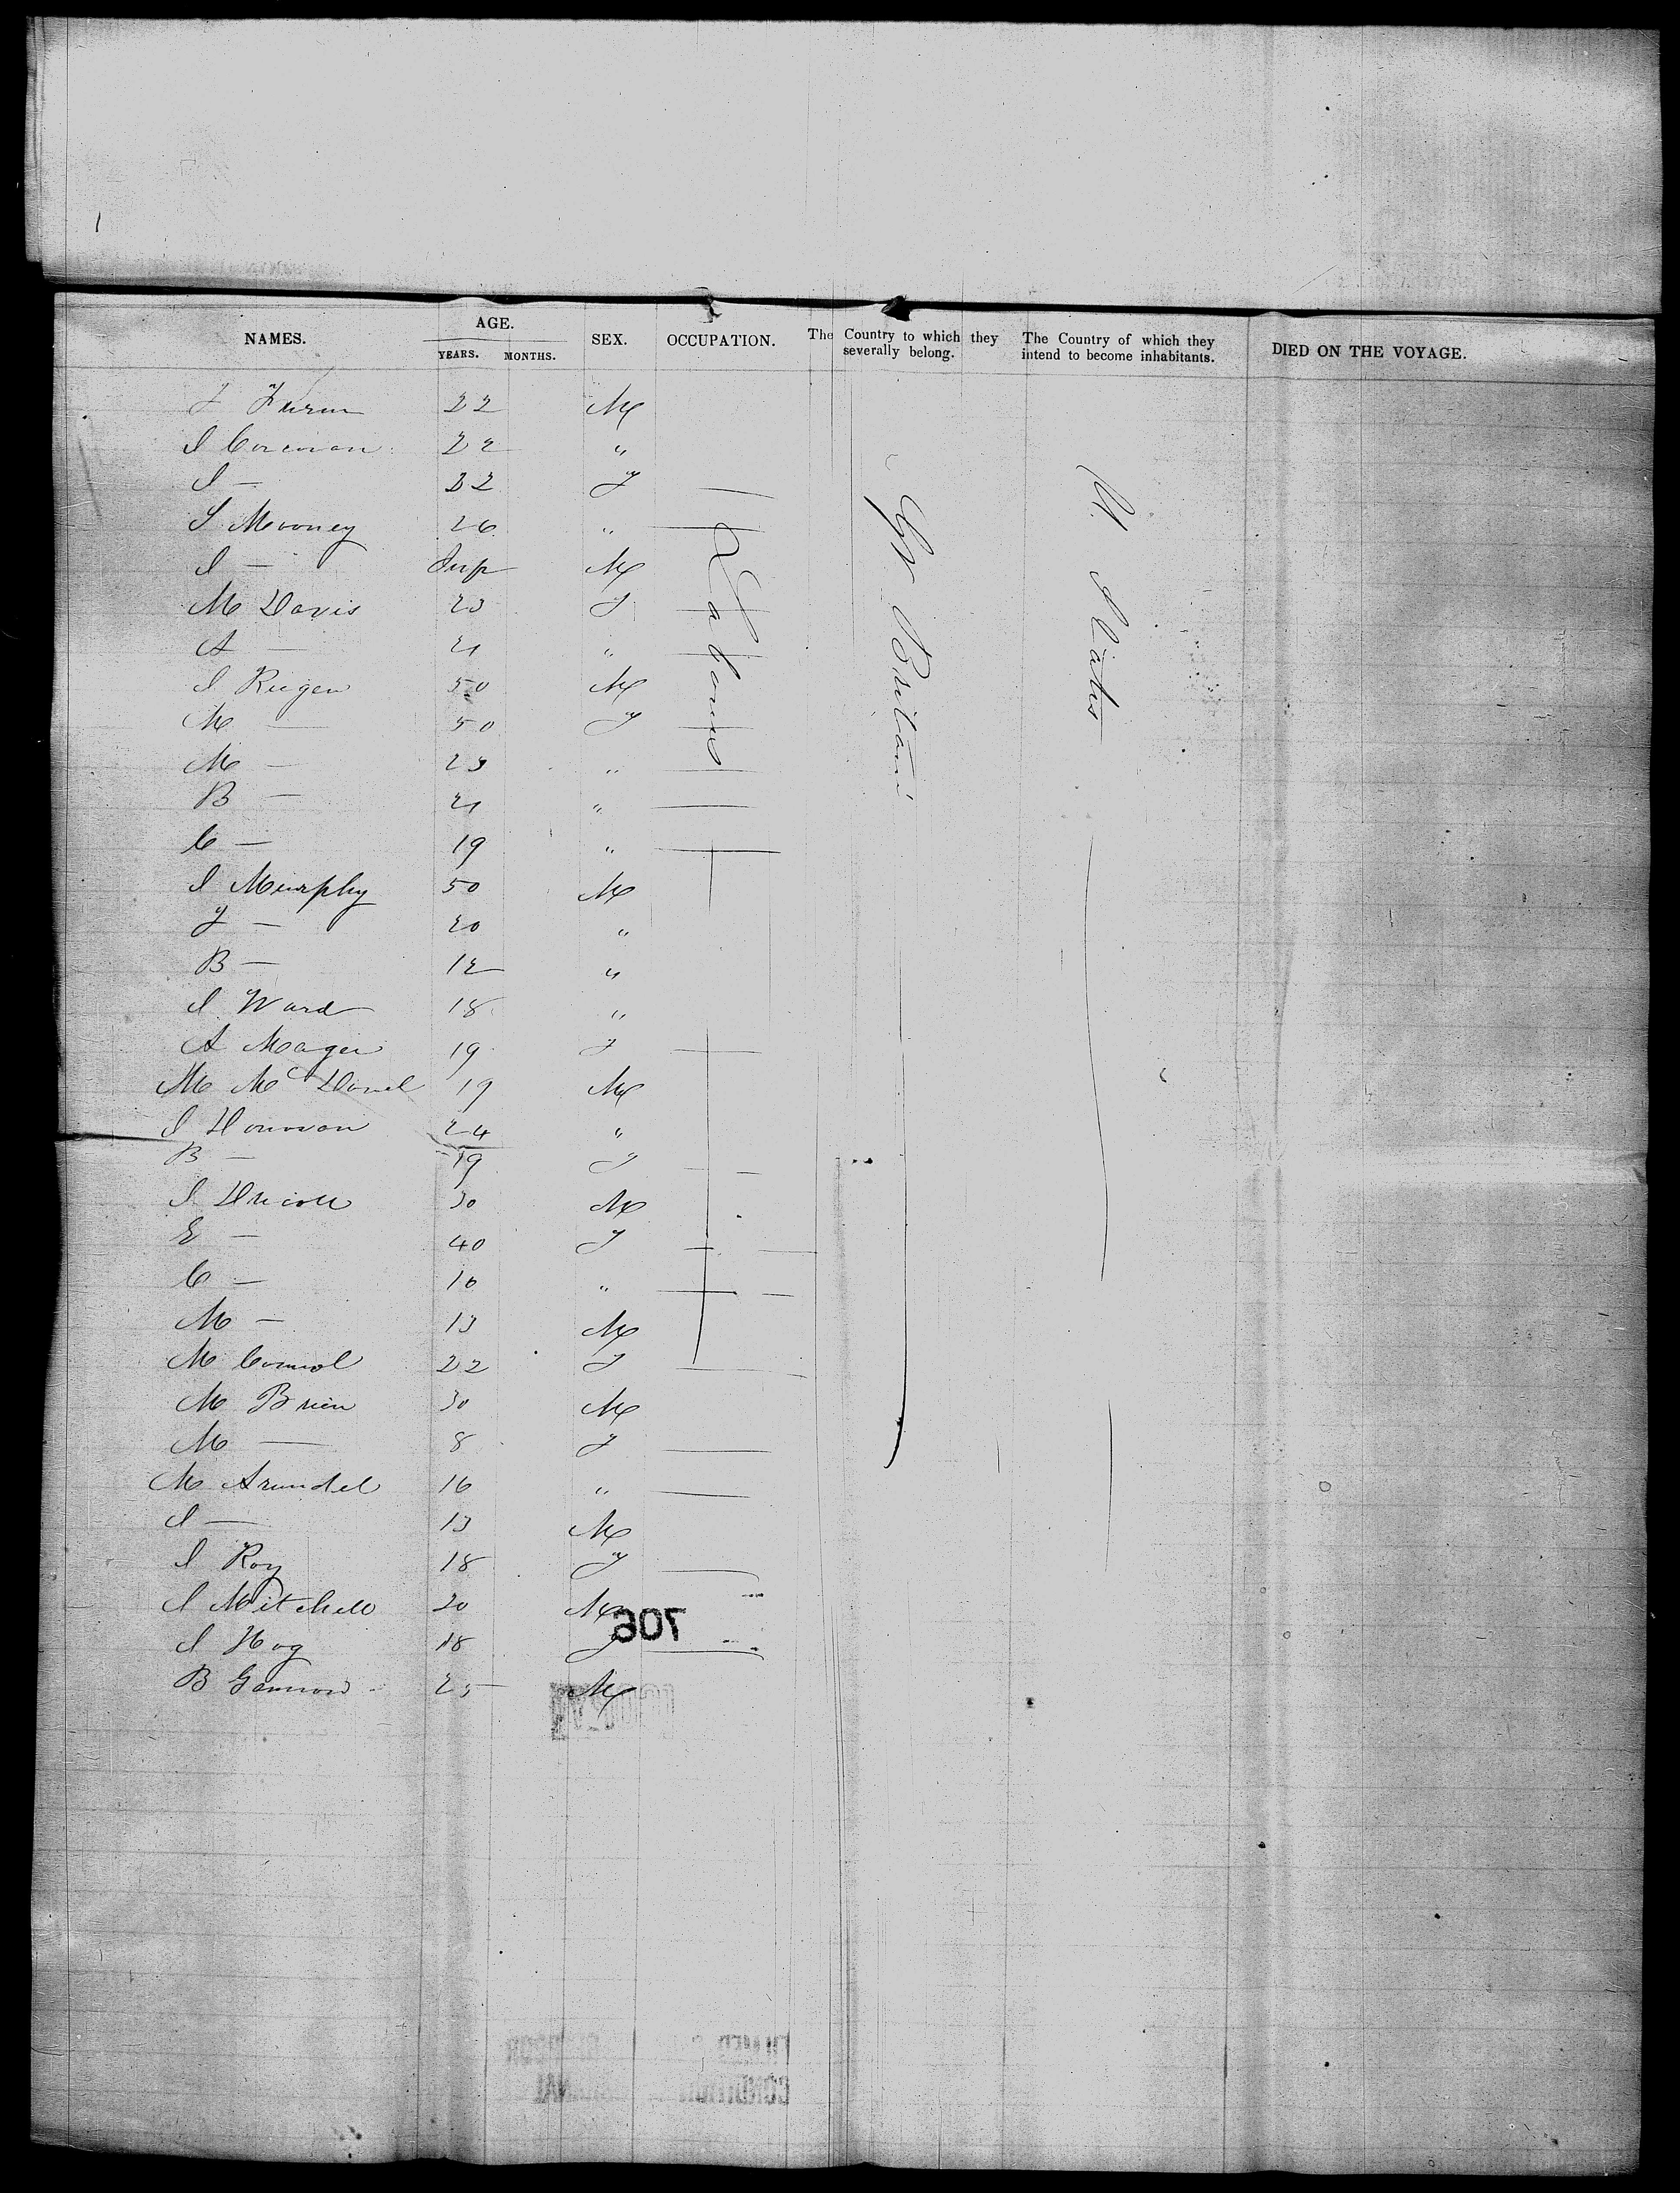 NAMES. AGE. YEARS. MONTHS. SEX. OCCUPATION. The Country to which they severally belong. The Country of which they intend to become inhabitants. DIED ON THE VOYAGE.
22 M
J Corcoran 22 "
J — 22 F —
S Mooney 26 " —
J — Inf M
M Davis 23 F —
A — 21 " —
J 50 M
M — 50 F —
M — 23 " —
B — 21 " —
C — 19 " —
J Murphy 50 M
J — 20 "
B — 12 "
J Ward 18 "
A 19 F —
M McDonel 19 M
J Donovan 24 "
B — 19 F —
J Driscoll 30 M
E — 40 F —
C — 10 " —
M — 13 M
M Connol 22 F —
M Brien 30 M
M — 8 F —
M Arundel 16 " —
J — 13 M
J Roy 18 F —
J Mitchell 20 M
J Hog 18 F —
B Gannon 25 M
Labourers
Gt Britain
U States
706